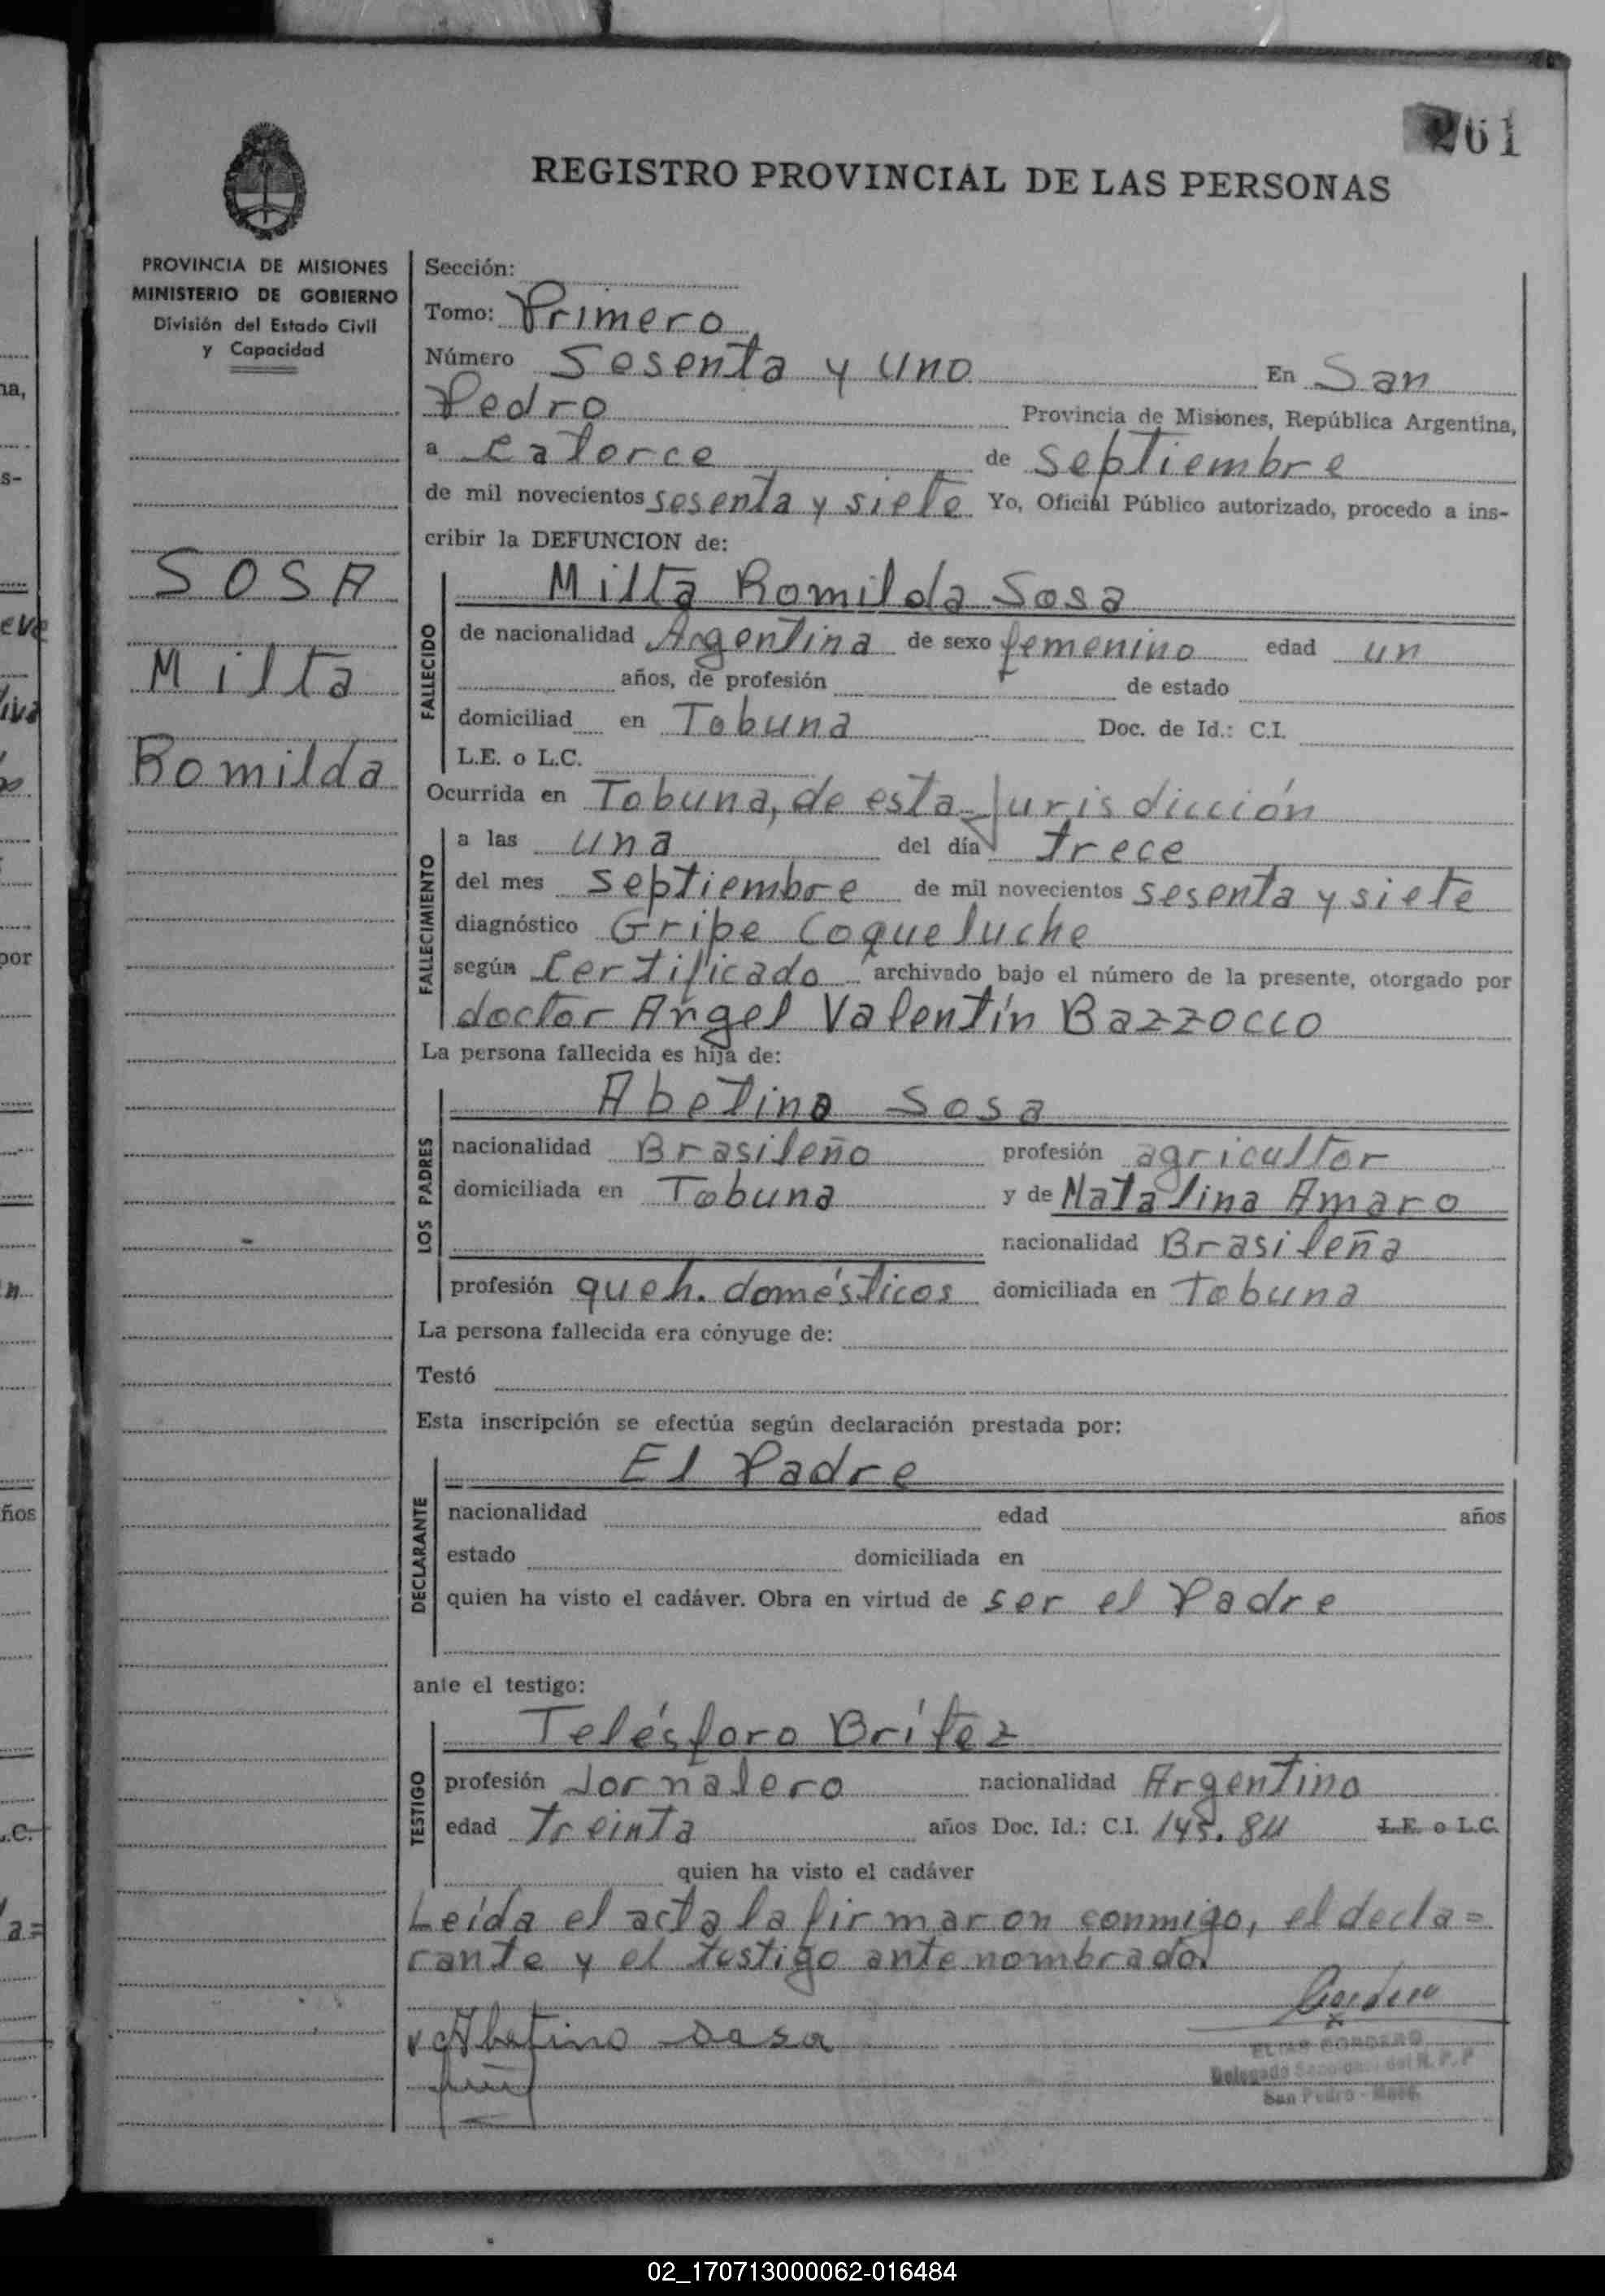 261
REGISTRO PROVINCIAL DE LAS PERSONAS
PROVINCIA DE MISIONES
MINISTERIO DE GOBIERNO
División del Estado Civil
y Capacidad
SOSA
Milta
Romilda
Sección:
Tomo: Primero
Número Sesenta y uno En San
Pedro Provincia de Misiones, República Argentina,
a catorce de septiembre
de mil novecientos sesenta y siete Yo, Oficial Público autorizado, procedo a ins-
cribir la DEFUNCION de:
FALLECIDO
Milta Romilda Sosa
de nacionalidad Argentina de sexo femenino edad un
años, de profesión de estado
domiciliad en Tobuna Doc. de Id.: C.I.
L.E. o L.C.
Ocurrida en Tobuna, de esta Jurisdicción
FALLECIMIENTO
a las una del día trece
del mes septiembre de mil novecientos sesenta y siete
diagnóstico Gripe Coqueluche
según Certificado archivado bajo el número de la presente, otorgado por
doctor Angel Valentín Bazzocco
La persona fallecida es hija de:
LOS PADRES
Abetino Sosa
nacionalidad Brasileño profesión agricultor
domiciliada en Tobuna y de Natalina Amaro
nacionalidad Brasileña
profesión queh. domésticos domiciliada en Tobuna
La persona fallecida era cónyuge de:
Testó
Esta inscripción se efectúa según declaración prestada por:
DECLARANTE
El Padre
nacionalidad edad años
estado domiciliada en
quien ha visto el cadáver. Obra en virtud de ser el Padre
ante el testigo:
TESTIGO
Telésforo Brítez
profesión Jornalero nacionalidad Argentino
edad treinta años Doc. Id.: C.I. L.E. o L.C.
quien ha visto el cadáver
Leída el acta la firmaron conmigo, el decla=
rante y el testigo ante nombrado.
Abetino Sosa
CORDERO
Delegado Seccional del R. P. P
San Pedro -
02_170713000062-016484